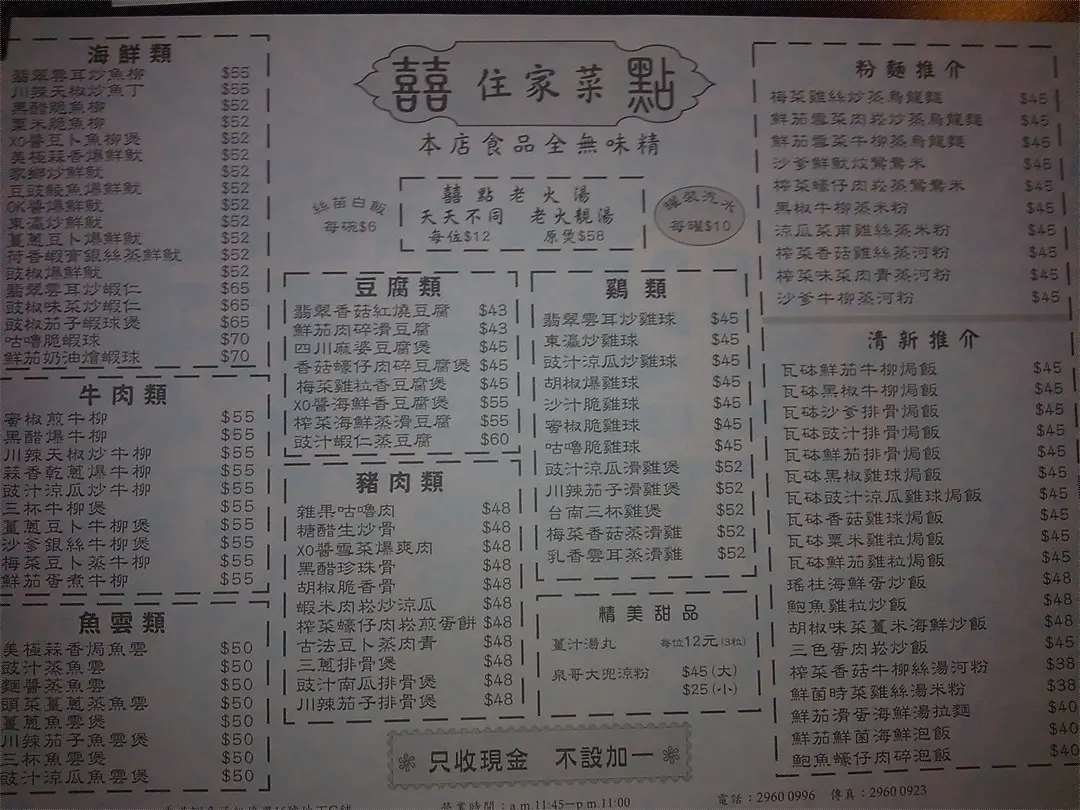 海鮮類
翡翠雲耳炒魚柳 $55
川辣天椒炒魚丁 $55
黑醋脆魚柳 $52
粟米脆魚柳 $52
XO醬豆卜魚柳煲 $52
美極蒜香爆鮮魷 $52
家鄉炒鮮魷 $52
豆豉鯪魚爆鮮魷 $52
OK醬爆鮮魷 $52
東瀛炒鮮魷 $52
薑蔥豆卜爆鮮魷 $52
荷香蝦膏銀絲蒸鮮魷 $52
豉椒爆鮮魷 $52
翡翠雲耳炒蝦仁 $65
豉椒味菜炒蝦仁 $65
豉椒茄子蝦球煲 $65
咕嚕脆蝦球 $70
鮮茄奶油燴蝦球 $70
牛肉類
蜜椒煎牛柳 $55
黑醋爆牛柳 $55
川辣天椒炒牛柳 $55
蒜香乾蔥爆牛柳 $55
豉汁涼瓜炒牛柳 $55
三杯牛柳煲 $55
薑蔥豆卜牛柳煲 $55
沙爹銀絲牛柳煲 $55
梅菜豆卜蒸牛柳 $55
鮮茄蛋煮牛柳 $55
魚雲類
美極蒜香焗魚雲 $50
豉汁蒸魚雲 $50
麵醬蒸魚雲 $50
頭菜薑蔥蒸魚雲 $50
薑蔥魚雲煲 $50
川辣茄子魚雲煲 $50
三杯魚雲煲 $50
豉汁涼瓜魚雲煲 $50
囍 住家菜 點
本店食品全無味精
絲苗白飯
每碗$6
囍點老火湯
天天不同 老火靚湯
每位$12 原煲$58
罐裝汽水
每罐$10
豆腐類
翡翠香菇紅燒豆腐 $43
鮮茄肉碎滑豆腐 $43
四川麻婆豆腐煲 $45
香菇蠔仔肉碎豆腐煲 $45
梅菜雞粒香豆腐煲 $45
XO醬海鮮香豆腐煲 $55
榨菜海鮮蒸滑豆腐 $55
豉汁蝦仁蒸豆腐 $60
豬肉類
雜果咕嚕肉 $48
糖醋生炒骨 $48
XO醬雪菜爆爽肉 $48
黑醋珍珠骨 $48
胡椒脆香骨 $48
蝦米肉崧炒涼瓜 $48
榨菜蠔仔肉崧煎蛋餅 $48
古法豆卜蒸肉青 $48
三蔥排骨煲 $48
豉汁南瓜排骨煲 $48
川辣茄子排骨煲 $48
鷄類
翡翠雲耳炒雞球 $45
東瀛炒雞球 $45
豉汁涼瓜炒雞球 $45
胡椒爆雞球 $45
沙汁脆雞球 $45
蜜椒脆雞球 $45
咕嚕脆雞球 $45
豉汁涼瓜滑雞煲 $52
川辣茄子滑雞煲 $52
台南三杯雞煲 $52
梅菜香菇蒸滑雞 $52
乳香雲耳蒸滑雞 $52
精美甜品
薑汁湯丸 每位12元(3粒)
泉哥大兜涼粉 $45(大)
$25(小)
粉麵推介
梅菜雞絲炒蒸烏龍麵 $45
鮮茄雪菜肉崧炒蒸烏龍麵 $45
鮮茄雪菜牛柳蒸烏龍麵 $45
沙爹鮮魷炆鴛鴦米 $45
榨菜蠔仔肉崧蒸鴛鴦米 $45
黑椒牛柳蒸米粉 $45
涼瓜菜甫雞絲蒸米粉 $45
榨菜香菇雞絲蒸河粉 $45
榨菜味菜肉青蒸河粉 $45
沙爹牛柳蒸河粉 $45
清新推介
瓦砵鮮茄牛柳焗飯 $45
瓦砵黑椒牛柳焗飯 $45
瓦砵沙爹排骨焗飯 $45
瓦砵豉汁排骨焗飯 $45
瓦砵鮮茄排骨焗飯 $45
瓦砵黑椒雞球焗飯 $45
瓦砵豉汁涼瓜雞球焗飯 $45
瓦砵香菇雞球焗飯 $45
瓦砵粟米雞粒焗飯 $45
瓦砵鮮茄雞粒焗飯 $45
瑤柱海鮮蛋炒飯 $48
鮑魚雞粒炒飯 $48
胡椒味菜薑米海鮮炒飯 $48
三色蛋肉崧炒飯 $45
榨菜香菇牛柳絲湯河粉 $38
鮮菌時菜雞絲湯米粉 $38
鮮茄滑蛋海鮮湯拉麵 $40
鮮茄鮮菌海鮮泡飯 $40
鮑魚蠔仔肉碎泡飯 $40
只收現金 不設加一
營業時間：a.m.11:45－p.m.11:00
電話：2960 0996 傳真：2960 0923